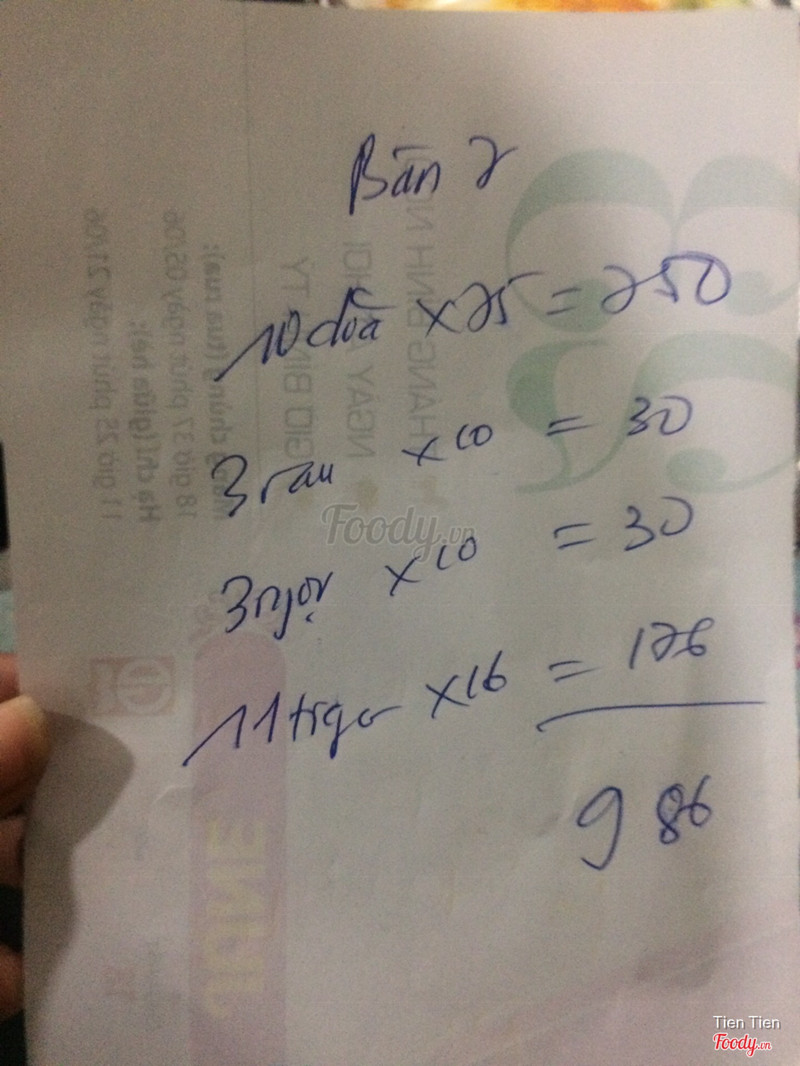 Bàn 7
10 dĩa x 75 = 750
3 rau x 10 = 30
3 ngọt x 10 = 30
11 tiger x 16 = 176
986
Foody.vn
Tien Tien
Foody.vn